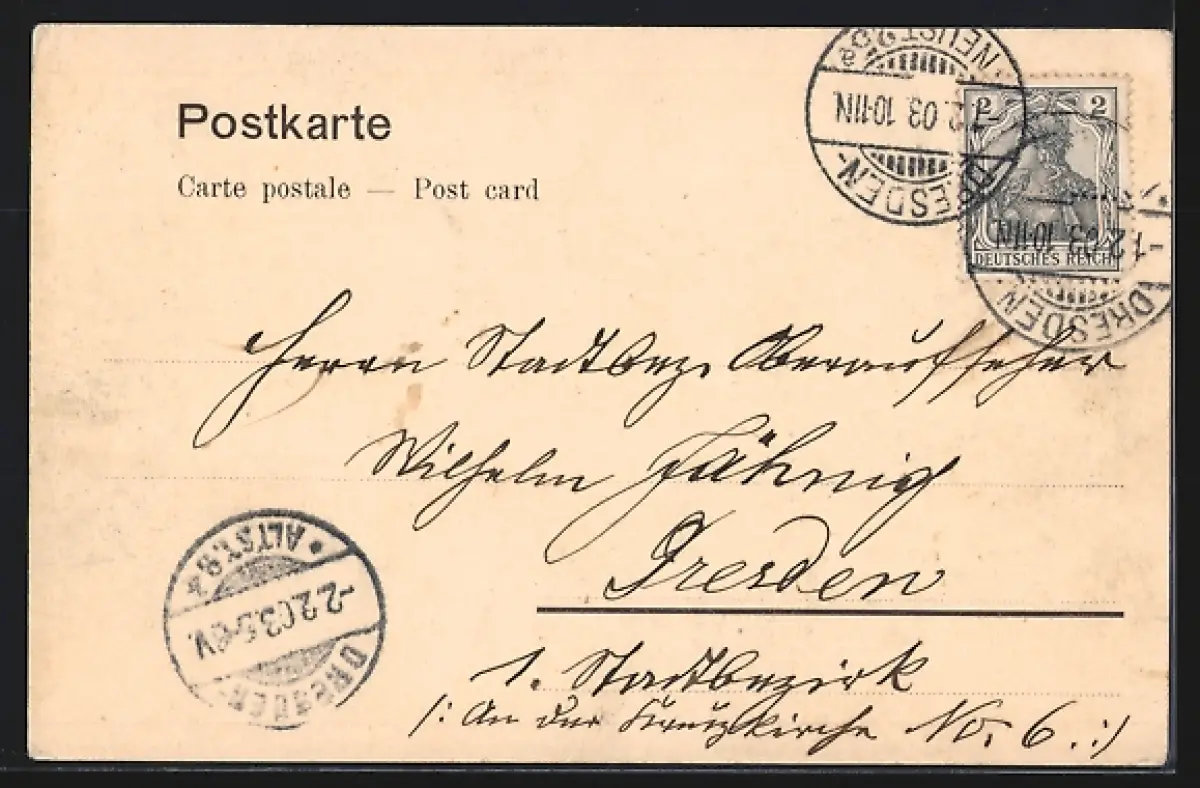 Postkarte
Carte postale — Post card
DRESDEN-NEUST.8a
1.2.03. 10-11N.
2 2
DEUTSCHES REICH
DRESDEN-
1.2.03. 10-11N.
Herrn Stadtbez. Oberaufseher
Wilhelm Jähnig
Dresden
1. Stadtbezirk
/: An der Kreuzkirche No. 6. :/
DRESDEN-ALTST.
-2.2.03.5-6V.